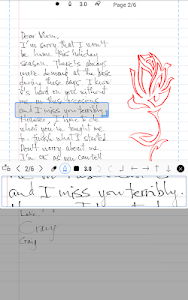 3.0 Page 2/6
Dear Mom,
I'm sorry that I won't
be home this holiday
season. There's always
more demand at the base
during these days. I know
it's hard on you without
me on these occasions
and I miss you terribly.
However, I have to do
what you've taught me
to: finish what I started.
Don't worry about me.
I'm ok as you can tell
2/6 3.0
and I miss you terribly.
Love,
Craig
Guy